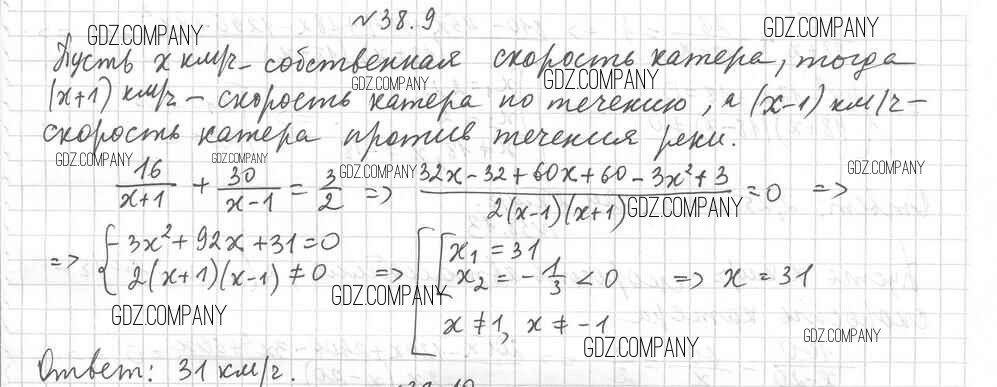 №38.9
GDZ.COMPANY GDZ.COMPANY
Пусть x км/ч - собственная скорость катера, тогда
GDZ.COMPANY GDZ.COMPANY
(x+1) км/ч - скорость катера по течению, а (x-1) км/ч -
скорость катера против течения реки.
GDZ.COMPANY GDZ.COMPANY GDZ.COMPANY GDZ.COMPANY
16/(x+1) + 30/(x-1) = 3/2 => (32x-32+60x+60-3x²+3)/(2(x-1)(x+1)) = 0 =>
GDZ.COMPANY
=> { -3x²+92x+31=0 => [ [ x₁ = 31
2(x+1)(x-1) ≠ 0 x₂ = -1/3 < 0 => x = 31
GDZ.COMPANY GDZ.COMPANY
x ≠ 1, x ≠ -1
GDZ.COMPANY GDZ.COMPANY
Ответ: 31 км/ч.